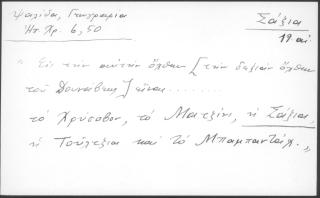 Ψαλίδα, Γεωγραφία
Ηπ. Χρ. 6, 50
Σάξια
19 αἰ.
"Εἰς τὴν αὐτὴν ὄχθην [τὴν δεξιὰν ὄχθην
τοῦ Δουνάβεως] εἶναι........
τὸ Χρύσοβον, τὸ Ματζίνι, ἡ Σάξια,
ἡ Τούλτζια καὶ τὸ Μπαμπαντάχ.„